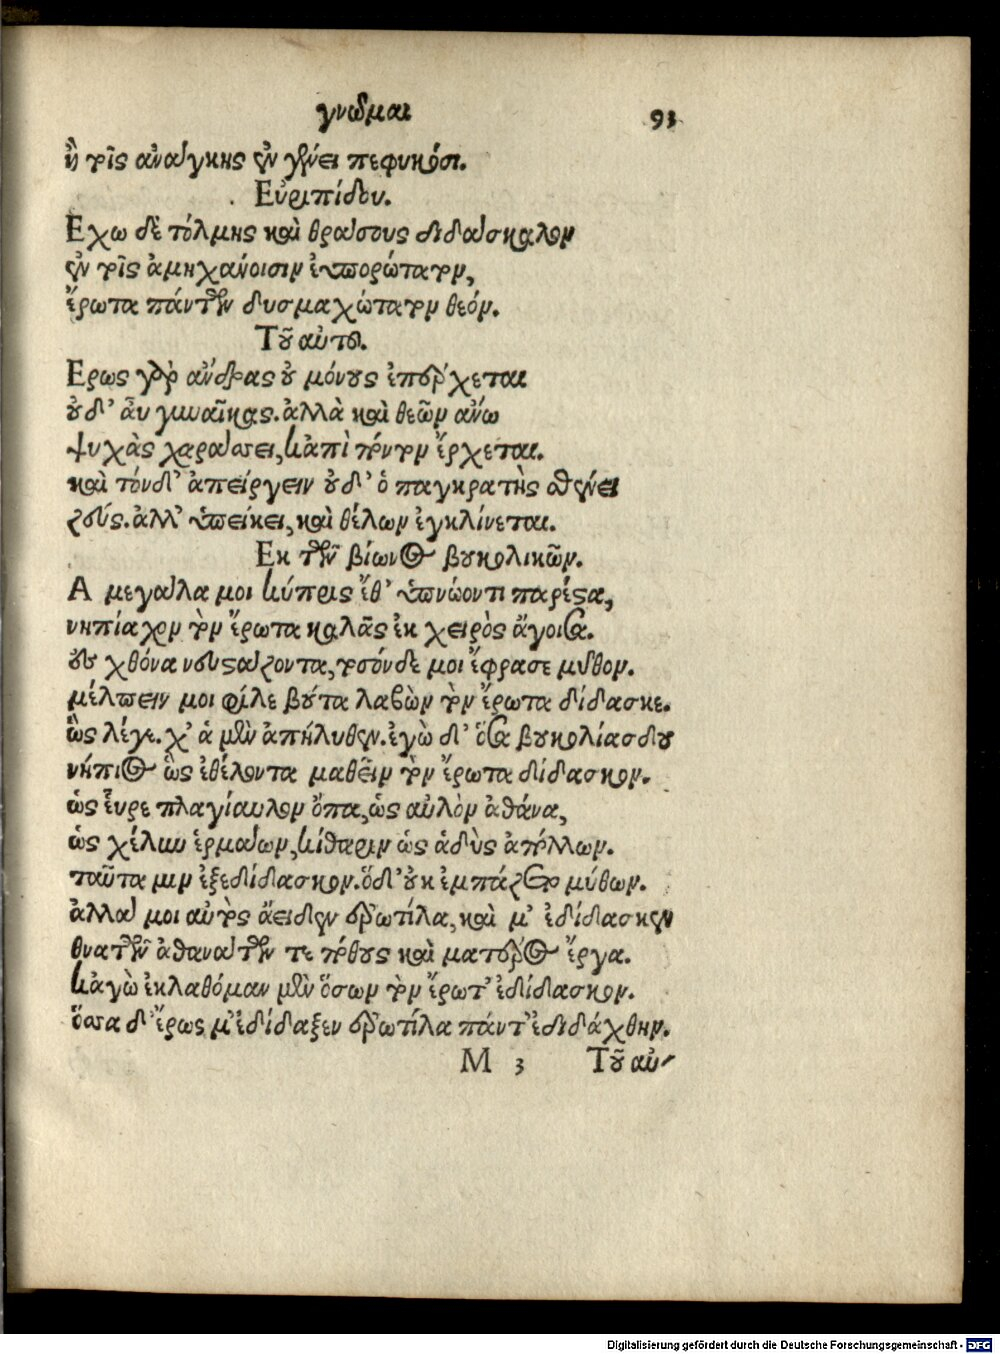 γνῶμαι 93
ἢ τοῖς ἀνάγκης ἐν γένει πεφυκόσι.
Εὐριπίδου.
Εχω δὲ τόλμης καὶ θράσους διδάσκαλον
ἐν τοῖς ἀμηχάνοισιν εὐπορώτατον,
ἔρωτα πάντων δυσμαχώτατον θεόν.
Τοῦ αὐτοῦ.
Ερως γὰρ ἄνδρας οὐ μόνους ἐπέρχεται
οὐδ' αὖ γυναῖκας. ἀλλὰ καὶ θεῶν ἄνω
ψυχὰς χαράσσει, κἀπὶ πόντον ἔρχεται.
καὶ τόνδ' ἀπείργειν οὐδ' ὁ παγκρατὴς σθένει
ζεύς. ἀλλ' ὑπείκει, καὶ θέλων ἐγκλίνεται.
Εκ τῶν βίωνος βουκολικῶν.
Α μεγάλα μοι κύπρις ἔθ' ὑπνώοντι παρέστα,
νηπίαχον τὸν ἔρωτα καλᾶς ἐκ χειρὸς ἄγοισα.
ἐς χθόνα νευστάζοντα, τόσόνδε μοι ἔφρασε μῦθον.
μέλπειν μοι φίλε βούτα λαβὼν τὸν ἔρωτα δίδασκε.
ὣς λέγε. χ' ἁ μὲν ἀπήλυθεν. ἐγὼ δ' ὅσα βουκολίασδον
νήπιος ὡς ἐθέλοντα μαθεῖν τὸν ἔρωτα δίδασκον.
ὡς εὗρε πλαγίαυλον ὄπα, ὡς αὐλὸν ἀθάνα,
ὡς χέλυν ἑρμάων, κίθαριν ὡς ἁδὺς ἀπόλλων.
ταῦτα μιν ἐξεδίδασκον. ὁδ' οὐκ ἐμπάζετο μύθων.
ἀλλά μοι αὐτὸς ἄειδεν ἐρωτύλα, καὶ μ' ἐδίδασκεν
θνατῶν ἀθανάτων τε πόθους καὶ ματέρος ἔργα.
κἀγὼ ἐκλαθόμαν μὲν ὅσων τὸν ἔρωτ' ἐδίδασκον.
ὅσσα δ' ἔρως μ' ἐδίδαξεν ἐρωτύλα πάντ' ἐδιδάχθην.
M 3 Τοῦ αὐ-
Digitalisierung gefördert durch die Deutsche Forschungsgemeinschaft - DFG